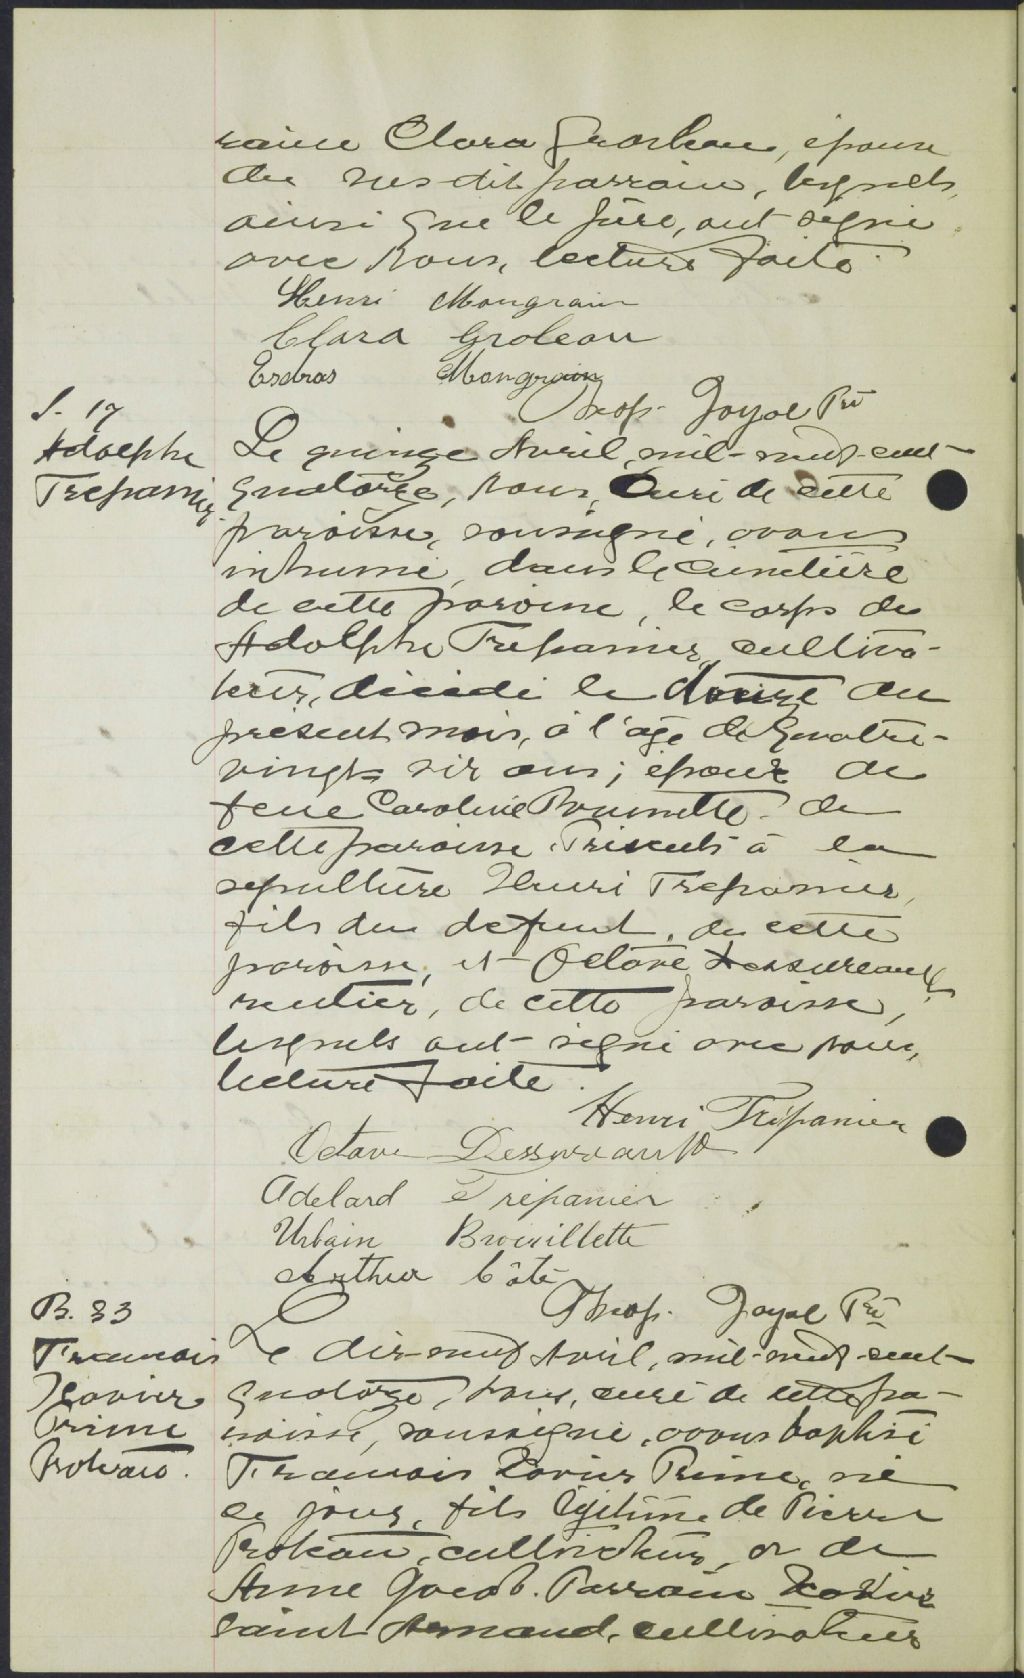 raine Clara Groleau, épouse
du susdit parrain, lesquels,
ainsi que le père, ont signé
avec nous, lecture faite.
Henri Mongrain
Clara Groleau
Esdras Mongrain
Théop. Joyal Ptre
S. 17
Adolphe
Trepanier
Le quinze Avril, mil-neuf-cent-
quatorze, nous, Curé de cette
paroisse, soussigné, avons
inhumé, dans le cimetière
de cette paroisse, le corps de
Adolphe Trepanier, cultiva-
teur, décédé le douze du
présent mois, à l'âge de quatre-
vingt six ans; époux de
feue Caroline Brunette de
cette paroisse. Présents à la
sepulture Henri Trepanier,
fils du defunt, de cette
paroisse, et Octave Dessureault,
rentier, de cette paroisse,
lesquels ont signé avec nous,
lecture faite.
Henri Trépanier
Octave Dessureault
Adelard Trépanier
Urbain Brouillette
Arthur Côté
Théop. Joyal Ptre
B. 33
Francois
Xavier
Prime
Proteau.
Le dix-neuf Avril, mil-neuf-cent-
quatorze, nous, curé de cette pa-
roisse, soussigné, avons baptisé
Francois Xavier Prime, né
ce jour, fils légitime de Pierre
Proteau, cultivateur, et de
Anne Jacob. Parrain Xavier
Saint Arnaud, cultivateur